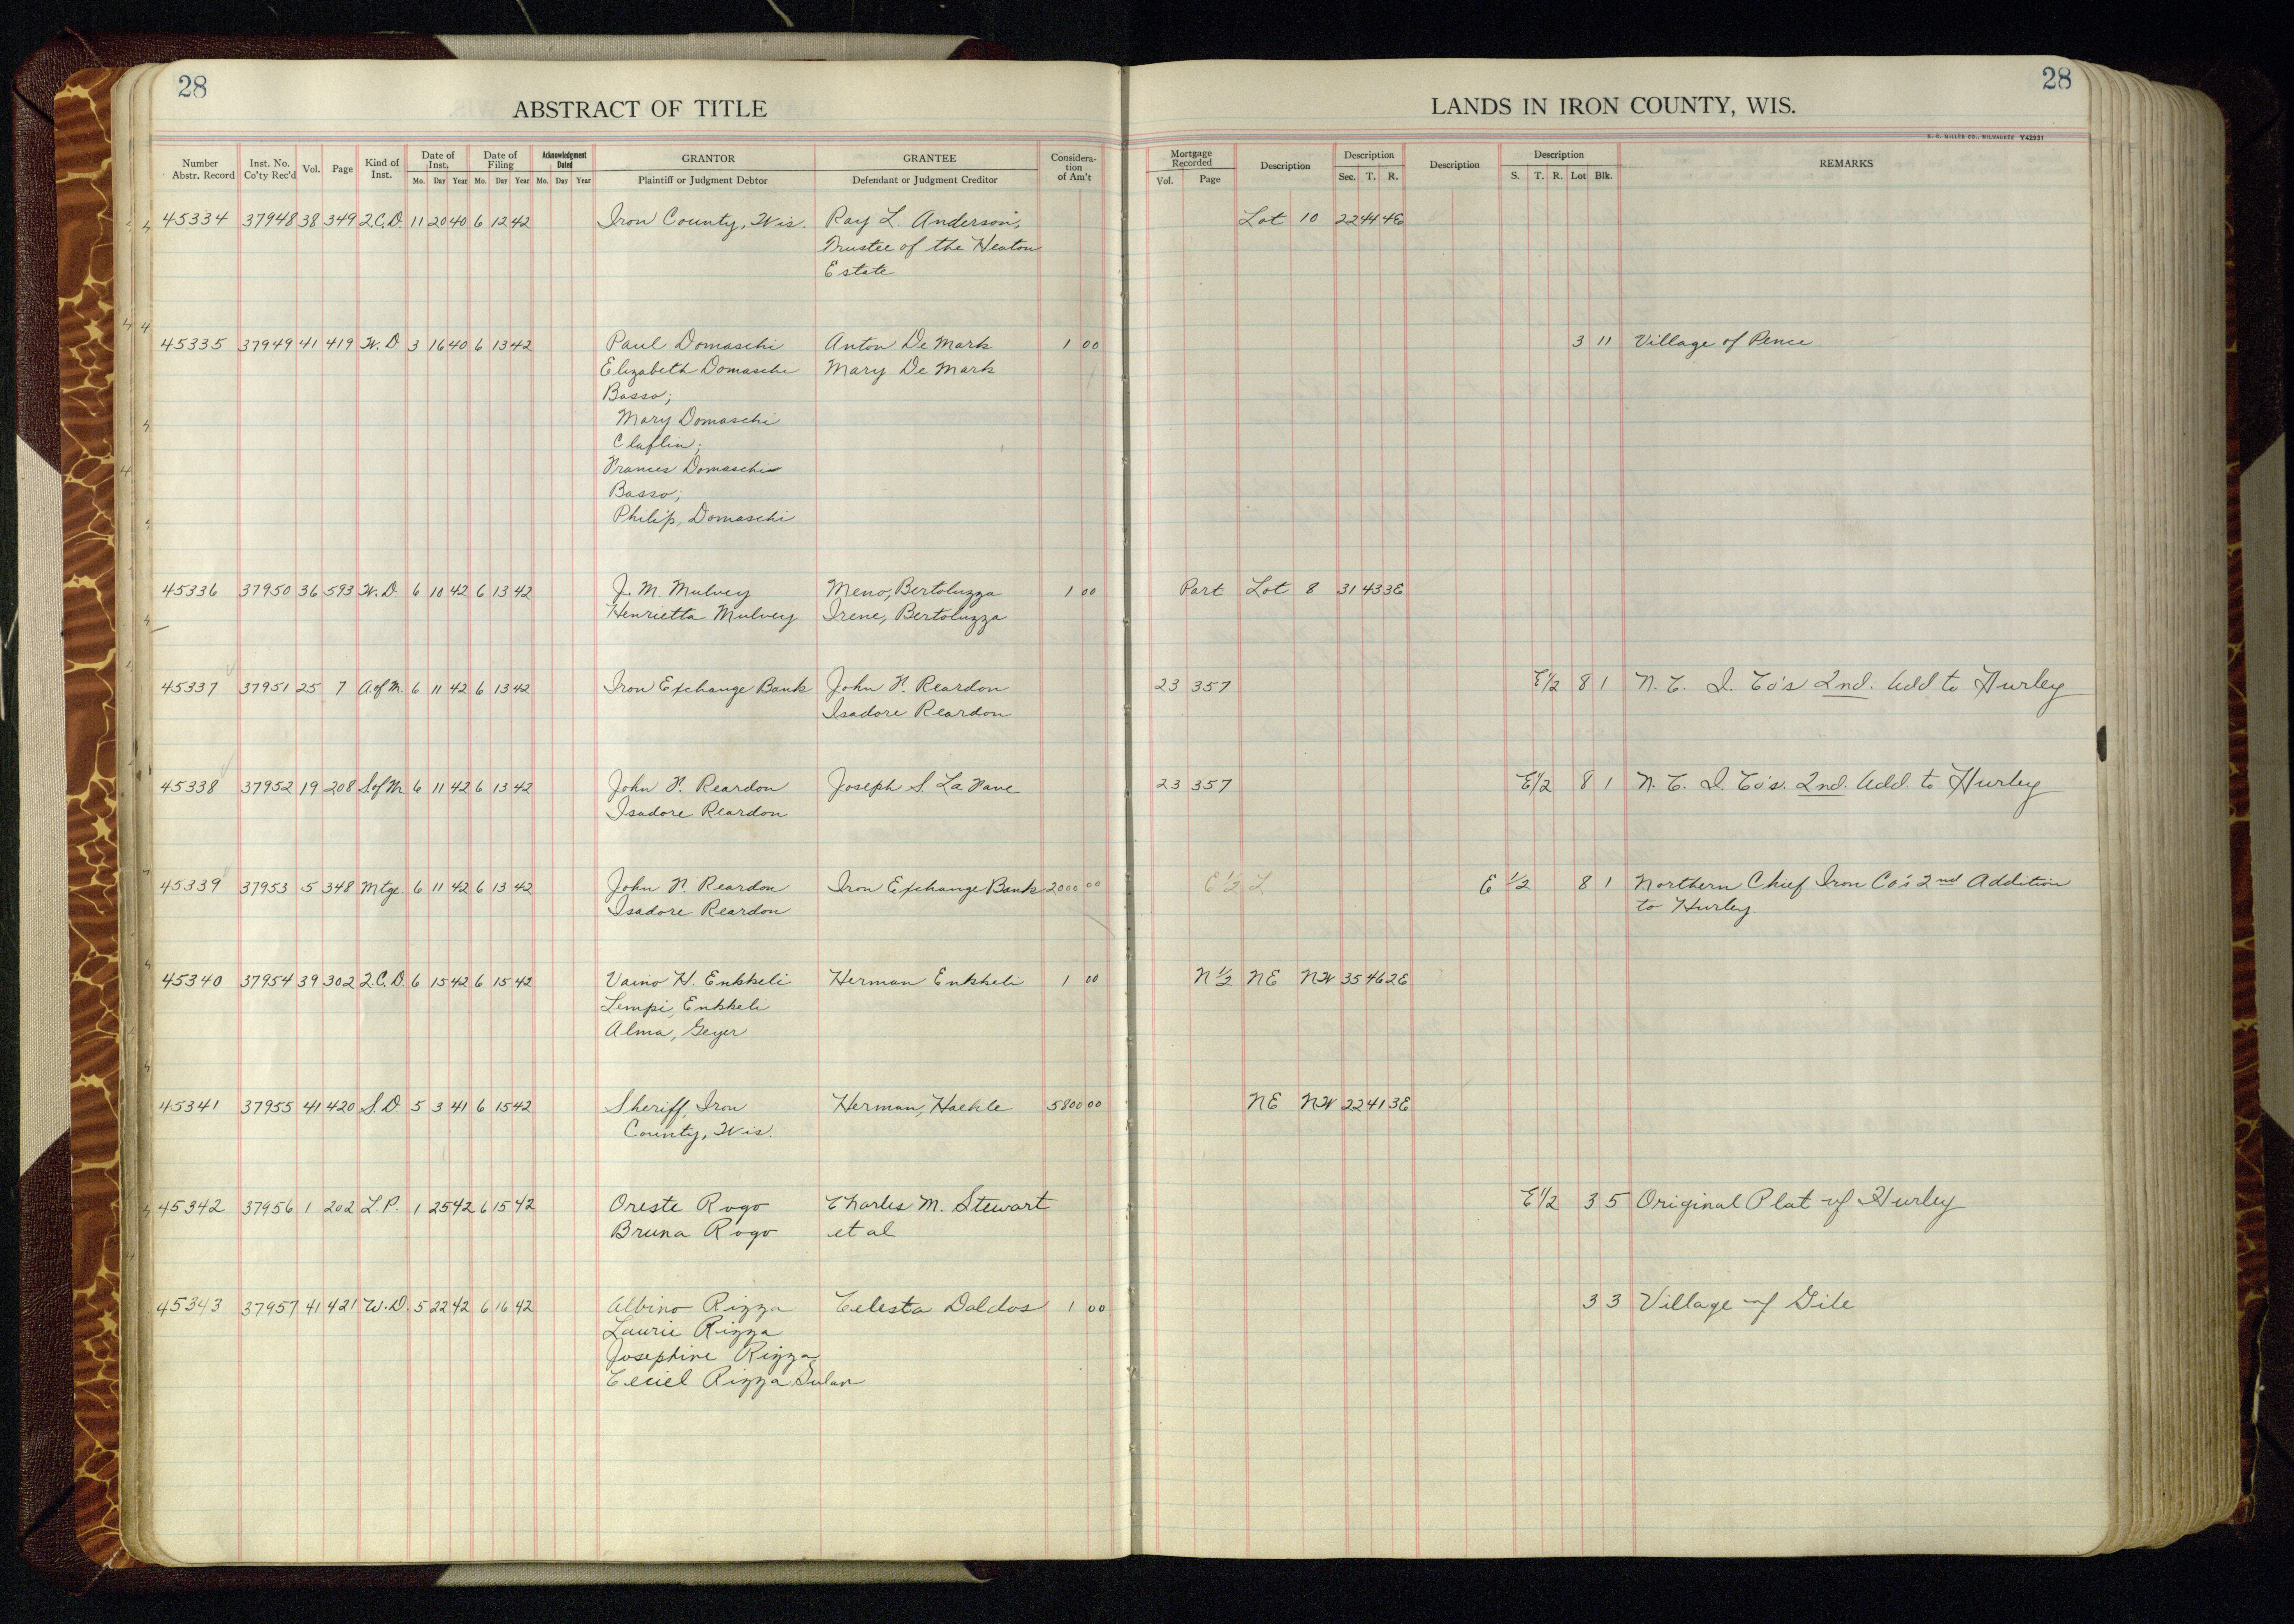 28
28
ABSTRACT OF TITLE
LANDS IN IRON COUNTY, WIS.
H. C. MILLER CO., MILWAUKEE Y42931
Number Abstr. Record Inst. No. Co'ty Rec'd Vol. Page Kind of Inst. Date of Inst. Mo. Day Year Date of Filing Mo. Day Year Acknowledgment Dated Mo. Day Year GRANTOR Plaintiff or Judgment Debtor GRANTEE Defendant or Judgment Creditor Consideration of Am't Mortgage Recorded Vol. Page Description Description Sec. T. R. Description Description S. T. R. Lot Blk. REMARKS
45334 37948 38 349 Q.C.D. 11 20 40 6 12 42 Iron County, Wis. Ray L. Anderson, Lot 10 22 44 4E
Trustee of the Heaton
Estate
45335 37949 41 419 W.D. 3 16 40 6 13 42 Paul Domaschi Anton De Mark 1 00 3 11 Village of Pence
Elizabeth Domaschi Mary De Mark
Basso;
Mary Domaschi
Claflin;
Frances Domaschi
Basso;
Philip, Domaschi
45336 37950 36 593 W.D. 6 10 42 6 13 42 J. M. Mulvey Meno, Bertoluzza 1 00 Part Lot 8 31 43 3E
Henrietta Mulvey Irene, Bertoluzza
45337 37951 25 7 A.of M. 6 11 42 6 13 42 Iron Exchange Bank John F. Reardon 23 357 E1/2 8 1 N. C. I. Co's 2nd. Add to Hurley
Isadore Reardon
45338 37952 19 208 S.of M. 6 11 42 6 13 42 John F. Reardon Joseph S. La Fave 23 357 E1/2 8 1 N. C. I. Co's. 2nd. Add. to Hurley
Isadore Reardon
45339 37953 5 348 Mtge. 6 11 42 6 13 42 John F. Reardon Iron Exchange Bank 2000 00 E 1/2 L E 1/2 8 1 Northern Chief Iron Co's 2nd Addition
Isadore Reardon to Hurley.
45340 37954 39 302 Q.C.D. 6 15 42 6 15 42 Vaino H. Enkkeli Herman Enkkeli 1 00 N 1/2 NE NW 35 46 2E
Lempi, Enkkeli
Alma, Geyer
45341 37955 41 420 S.D. 5 3 41 6 15 42 Sheriff, Iron Herman, Haehle 5800 00 NE NW 22 41 3E
County, Wis.
45342 37956 1 202 L.P. 1 25 42 6 15 42 Oreste Rogo Charles M. Stewart E1/2 3 5 Original Plat of Hurley
Bruna Rogo et al
45343 37957 41 421 W.D. 5 22 42 6 16 42 Albino Rizza Celesta Daldos 1 00 3 3 Village of Gile
Laurie Rizza
Josephine Rizza
Ceciel Rizza Sulan